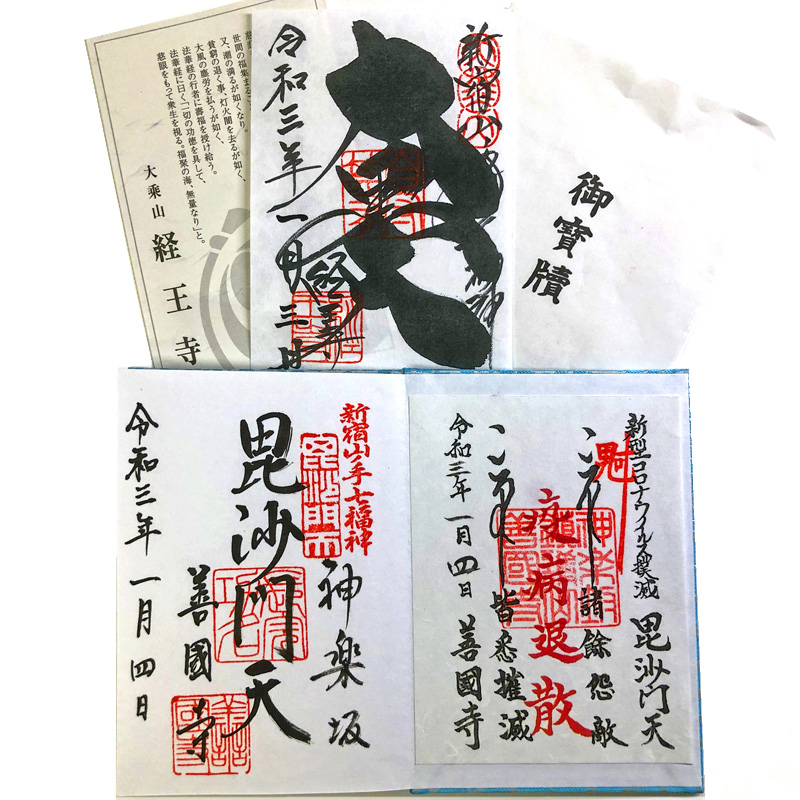 世間の福集まる
又、潮の満るが如くなり。
貧窮の退く事、灯火闇を去るが如く、
大風の塵労を払うが如く、
法華経の行者に壽福を授け給う。
法華経に曰く「一切の功徳を具して、
慈眼をもって衆生を視る。福聚の海、無量なり」と。
大乗山 経王寺
新宿山
経王寺
令和三年一月三日
御寶牘
新宿山ノ手七福神
神楽坂
毘沙門天
善國寺
令和三年一月四日
新型コロナウイルス撲滅 毘沙門天
諸餘怨敵
疫病退散
皆悉摧滅
令和三年一月四日 善國寺